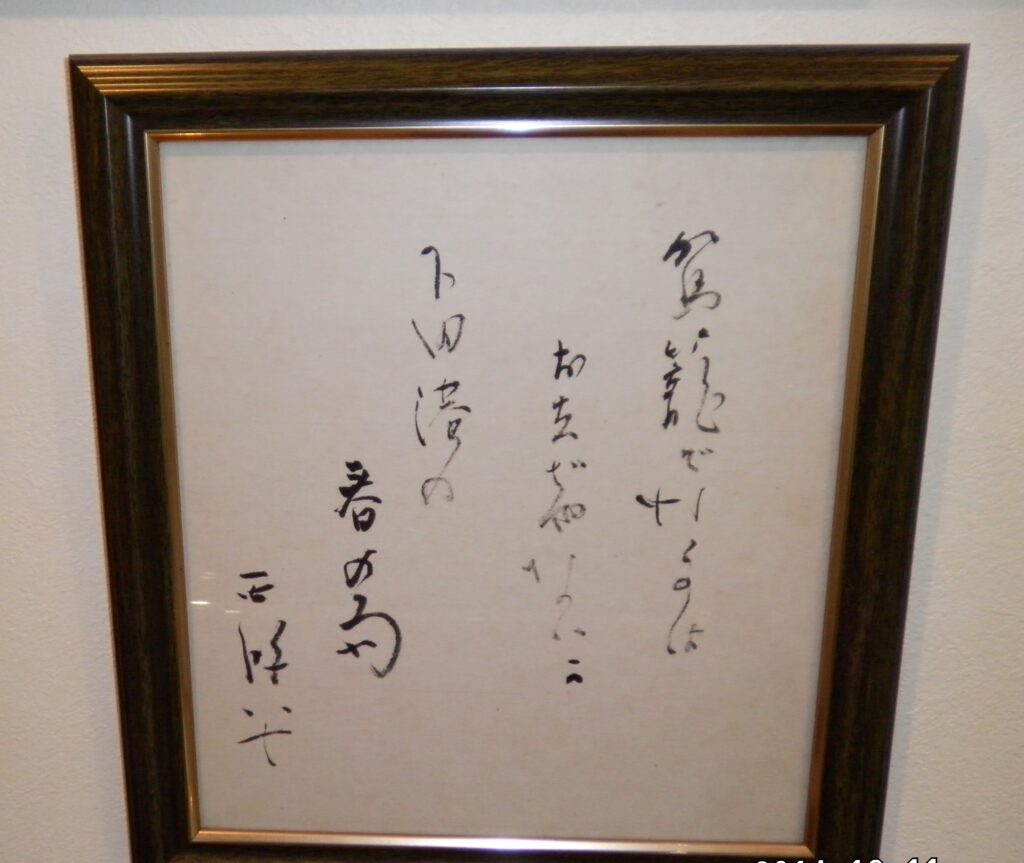 駕籠で行くのは
お吉ぢやないか
下田港の
春の雨
西條八十